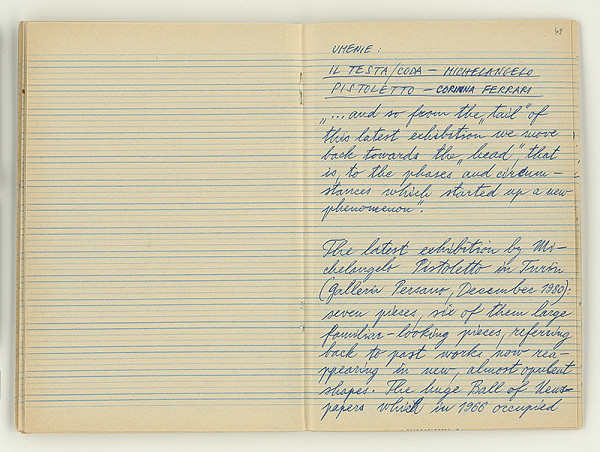 48
UMENIE:
IL TESTA/CODA – MICHELANGELO
PISTOLETTO – CORINNA FERRARI
„...and so from the „tail" of
this latest exhibition we move
back towards the „head" that
is, to the phases and circum-
stances which started up a new
phenomenon".
The latest exhibition by Mi-
chelangelo Pistoletto in Turin
(Galleria Persano, December 1980):
seven pieces, six of them large
familiar-looking pieces, referring
back to past works now rea-
ppearing in new, almost opulent
shapes. The huge Ball of News-
papers which in 1966 occupied